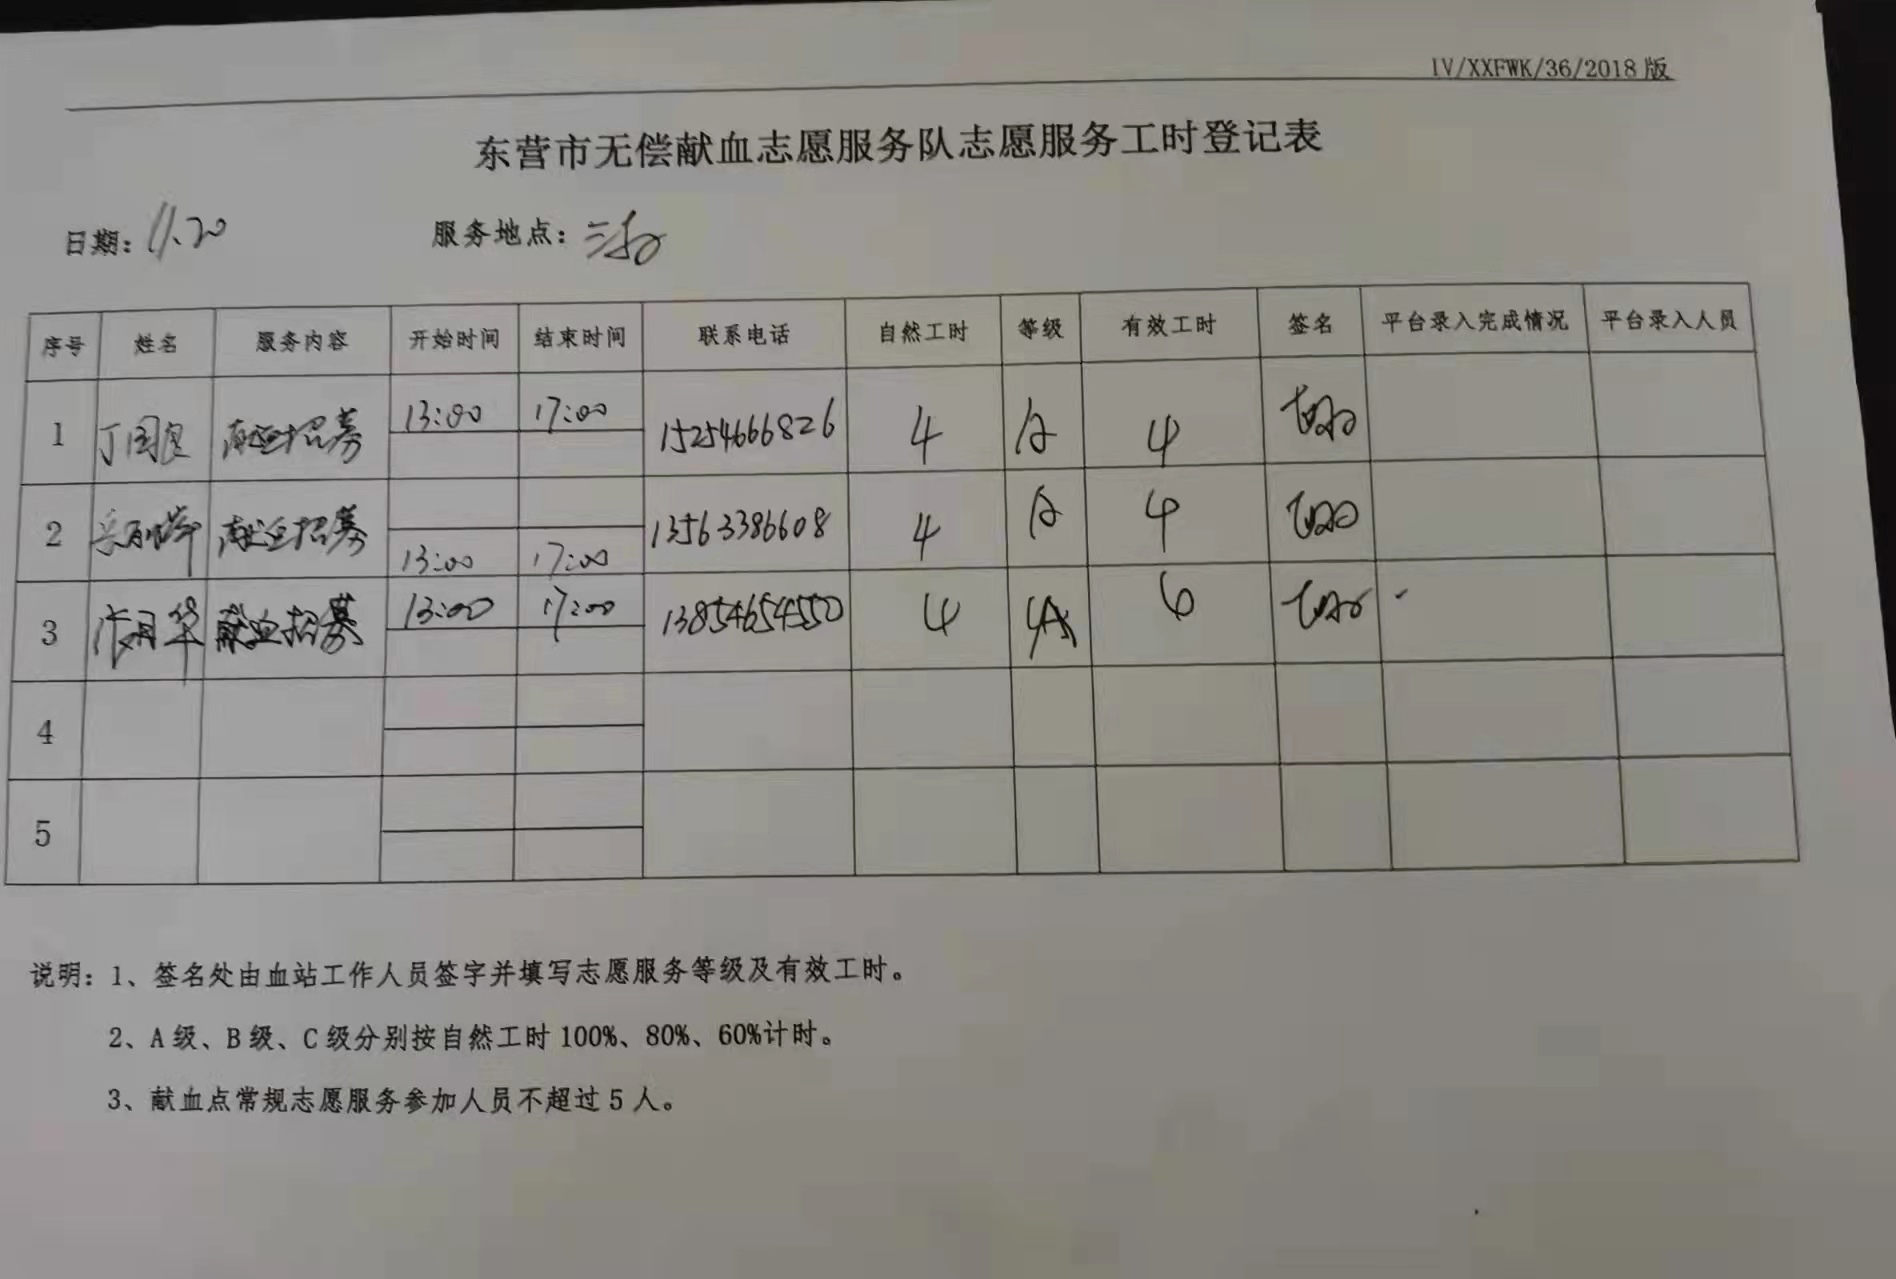 IV/XXFWK/36/2018版
东营市无偿献血志愿服务队志愿服务工时登记表
日期：11.20 服务地点：
序号 姓名 服务内容 开始时间 结束时间 联系电话 自然工时 等级 有效工时 签名 平台录入完成情况 平台录入人员
1 丁国良 献血招募 13:00 17:00 15254666826 4 A 4
2 献血招募 13:00 17:00 13563386608 4 A 4
3 献血招募 13:00 17:00 13854654550 4 A
4
5
说明：1、签名处由血站工作人员签字并填写志愿服务等级及有效工时。
2、A级、B级、C级分别按自然工时100%、80%、60%计时。
3、献血点常规志愿服务参加人员不超过5人。